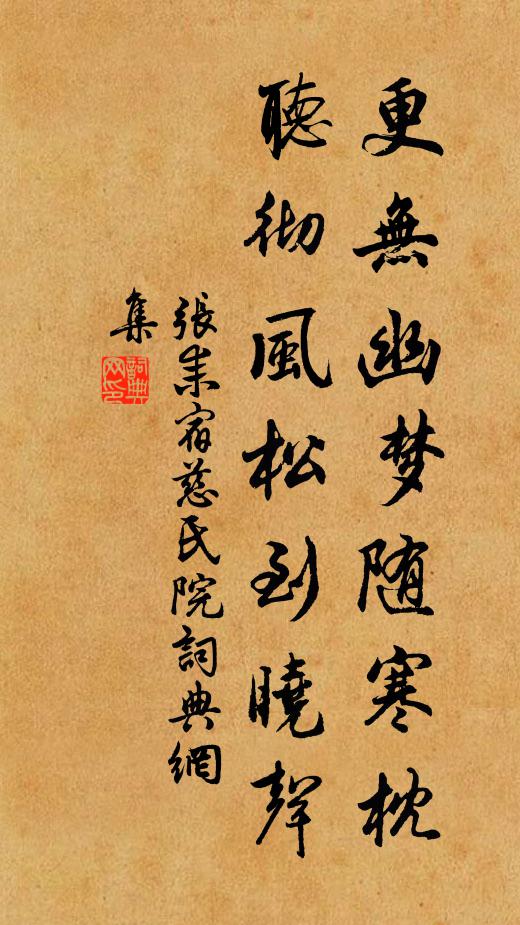 更無幽梦随寒枕
聽彻風松到曉聲
張耒宿慈氏院詞典網
集
詞典
网印